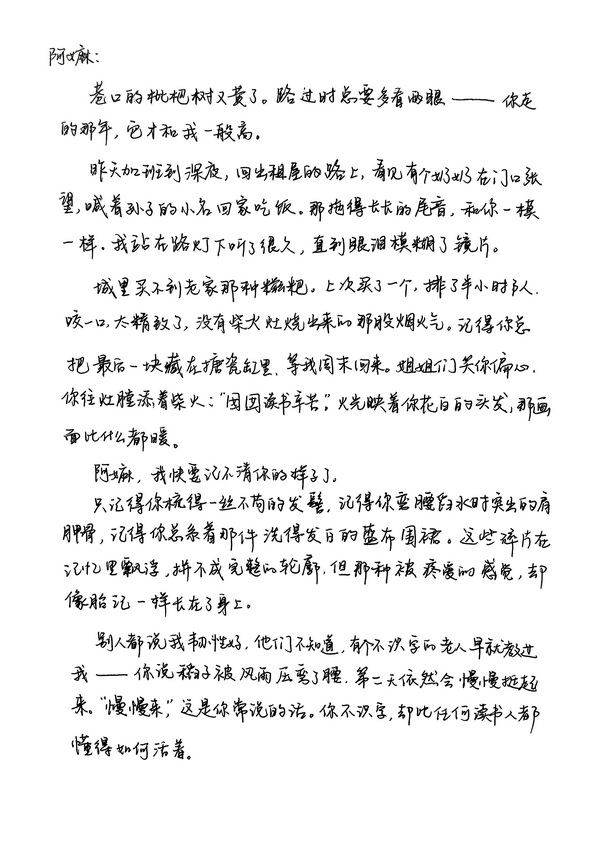 阿嬷：
巷口的枇杷树又黄了。路过时总要多看两眼——你走
的那年，它才和我一般高。
昨天加班到深夜，回出租屋的路上，看见有个奶奶在门口张
望，喊着孙子的小名回家吃饭。那拖得长长的尾音，和你一模
一样。我站在路灯下听了很久，直到眼泪模糊了镜片。
城里买不到老家那种糍粑。上次买了一个，排了半小时队，
咬一口，太精致了，没有柴火灶烧出来的那股烟火气。记得你总
把最后一块藏在搪瓷缸里，等我周末回来。姐姐们笑你偏心，
你往灶膛添着柴火："囡囡读书辛苦。"火光映着你花白的头发，那画
面比什么都暖。
阿嬷，我快要记不清你的样子了。
只记得你梳得一丝不苟的发髻，记得你弯腰舀水时突出的肩
胛骨，记得你总系着那件洗得发白的蓝布围裙。这些碎片在
记忆里飘浮，拼不成完整的轮廓，但那种被疼爱的感觉，却
像胎记一样长在了身上。
别人都说我韧性好，他们不知道，有个不识字的老人早就教过
我——你说稻子被风雨压弯了腰，第二天依然会慢慢挺起
来。"慢慢来，"这是你常说的话。你不识字，却比任何读书人都
懂得如何活着。